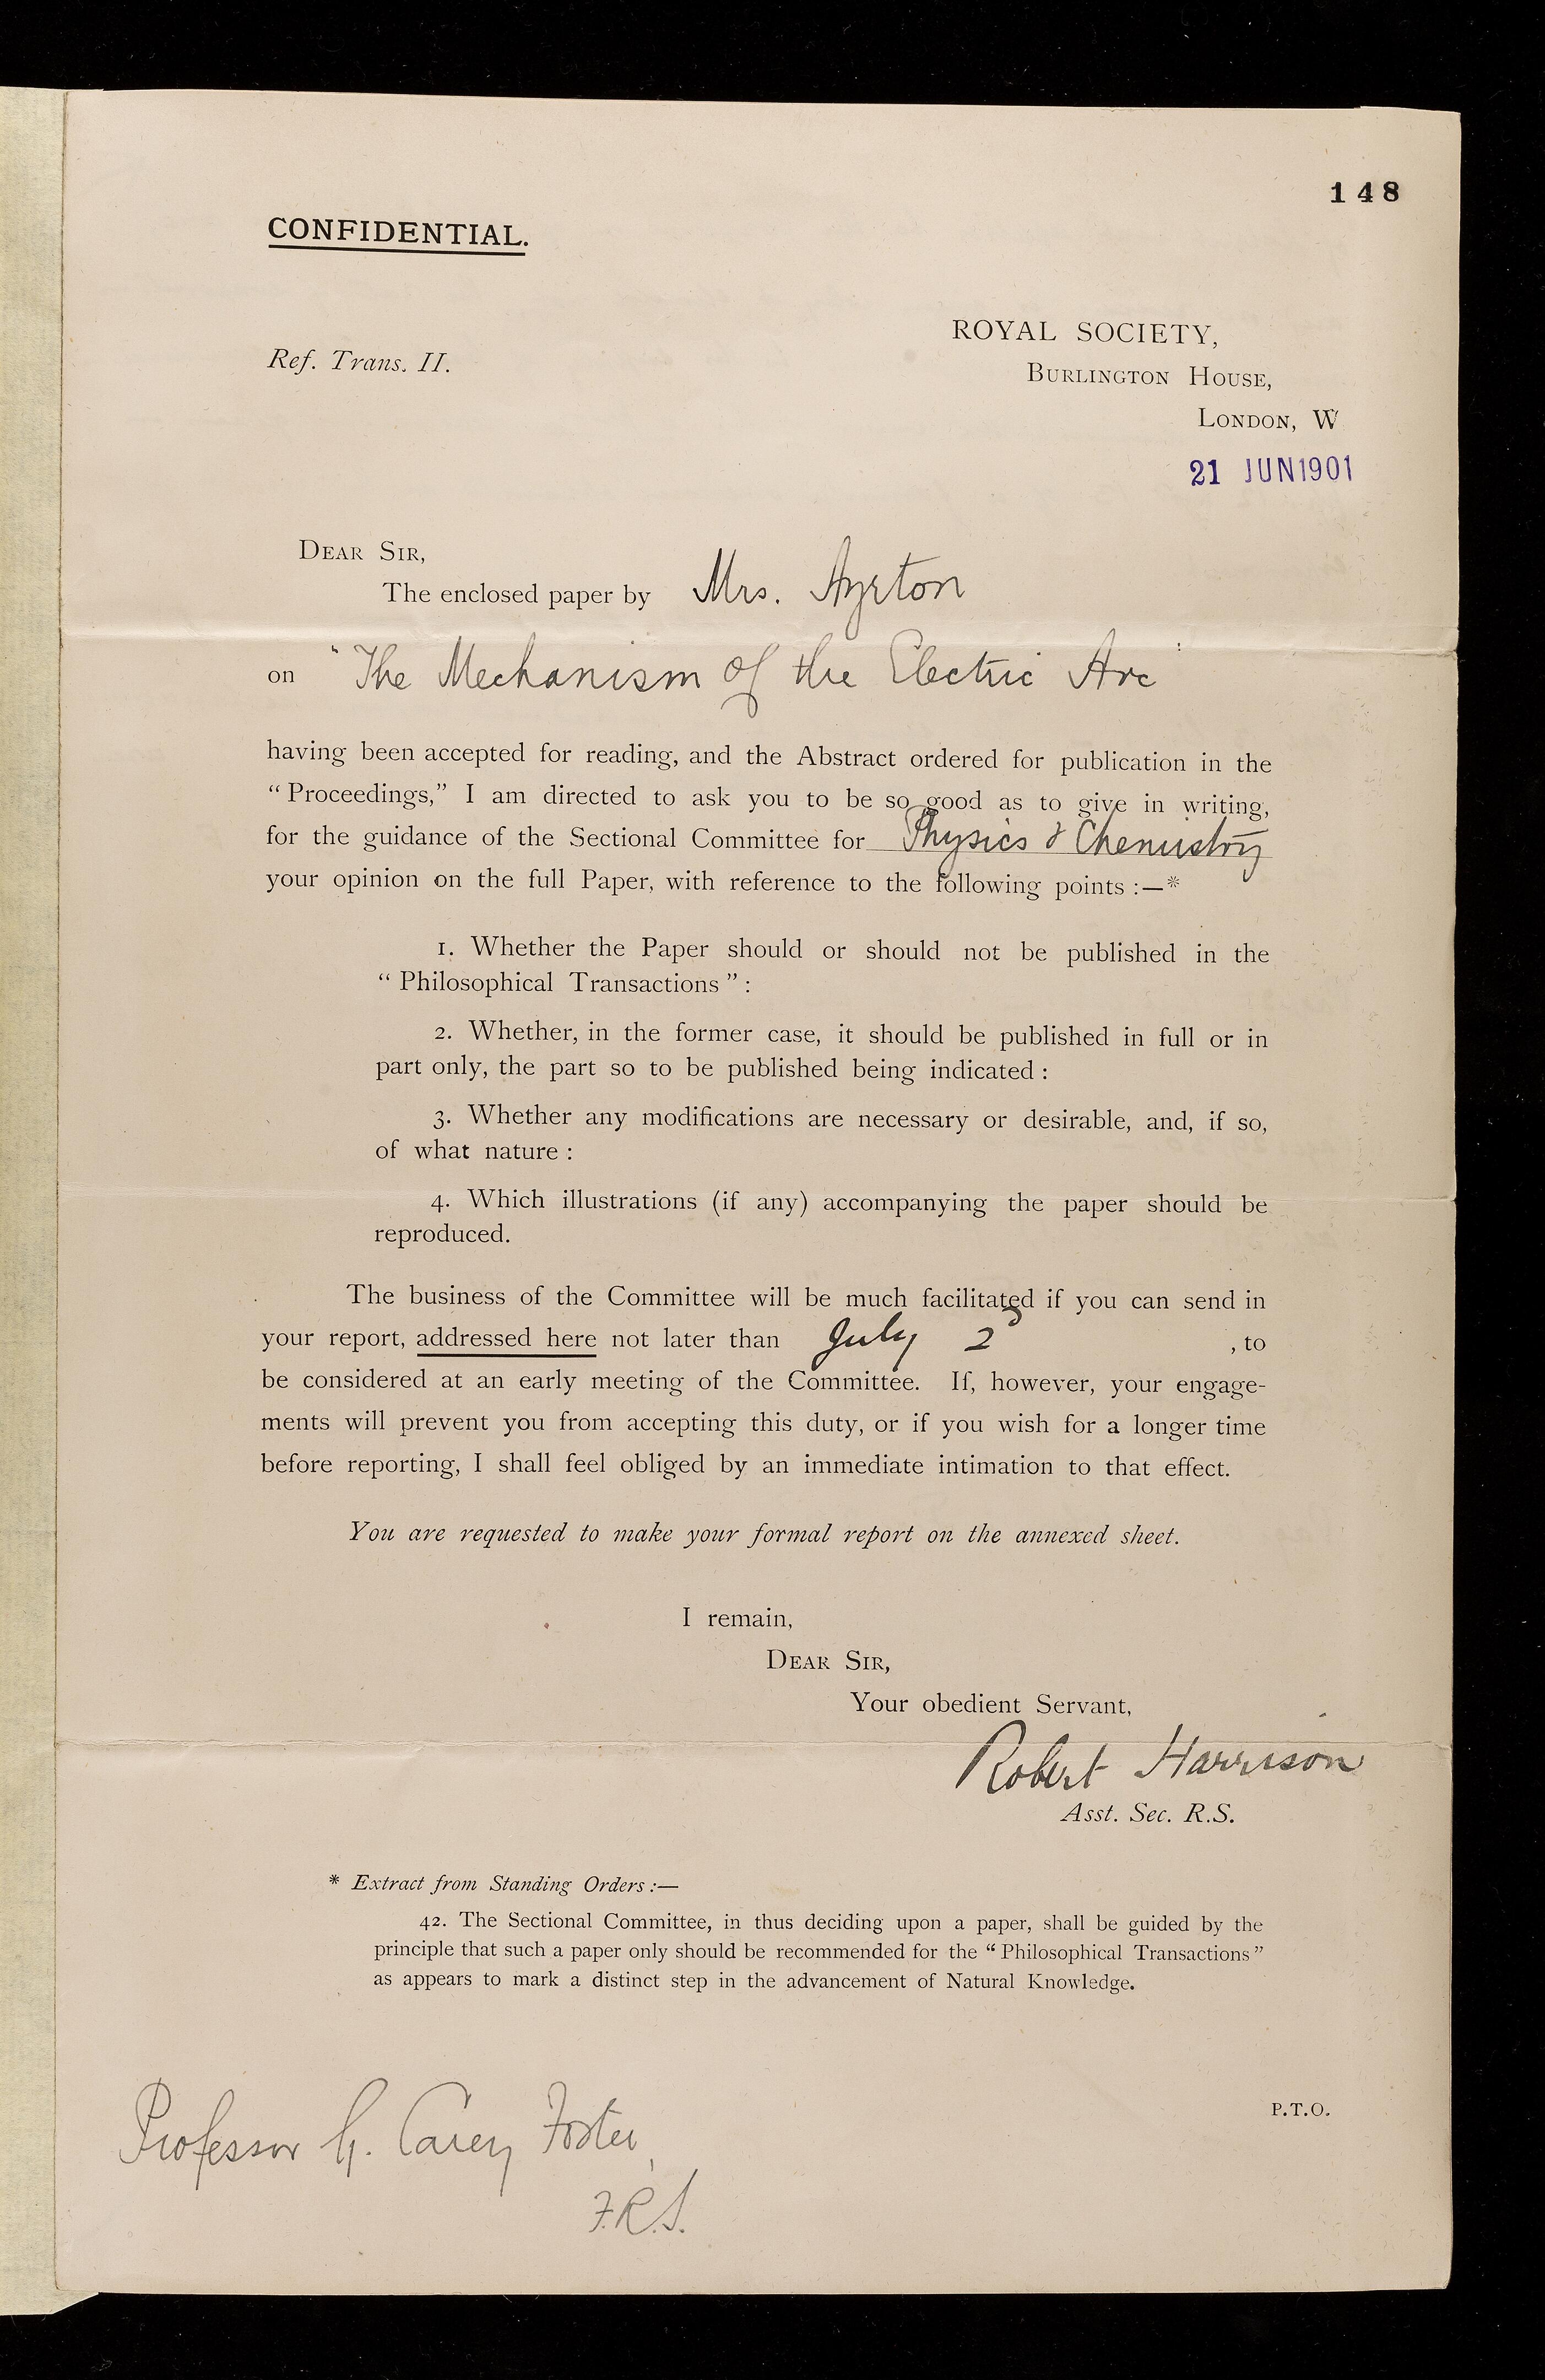 148
CONFIDENTIAL.
ROYAL SOCIETY,
Ref. Trans. II.
BURLINGTON HOUSE,
LONDON, W
21 JUN 1901
DEAR SIR,
The enclosed paper by Mrs. Ayrton
on "The Mechanism of the Electric Arc"
having been accepted for reading, and the Abstract ordered for publication in the
“Proceedings,” I am directed to ask you to be so good as to give in writing,
for the guidance of the Sectional Committee for Physics & Chemistry
your opinion on the full Paper, with reference to the following points :—*
1. Whether the Paper should or should not be published in the
“Philosophical Transactions” :
2. Whether, in the former case, it should be published in full or in
part only, the part so to be published being indicated :
3. Whether any modifications are necessary or desirable, and, if so,
of what nature :
4. Which illustrations (if any) accompanying the paper should be
reproduced.
The business of the Committee will be much facilitated if you can send in
your report, addressed here not later than July 2 , to
be considered at an early meeting of the Committee. If, however, your engage-
ments will prevent you from accepting this duty, or if you wish for a longer time
before reporting, I shall feel obliged by an immediate intimation to that effect.
You are requested to make your formal report on the annexed sheet.
I remain,
DEAR SIR,
Your obedient Servant,
Robert Harrison
Asst. Sec. R.S.
* Extract from Standing Orders :—
42. The Sectional Committee, in thus deciding upon a paper, shall be guided by the
principle that such a paper only should be recommended for the “Philosophical Transactions”
as appears to mark a distinct step in the advancement of Natural Knowledge.
P.T.O.
Professor G. Carey Foster,
F.R.S.